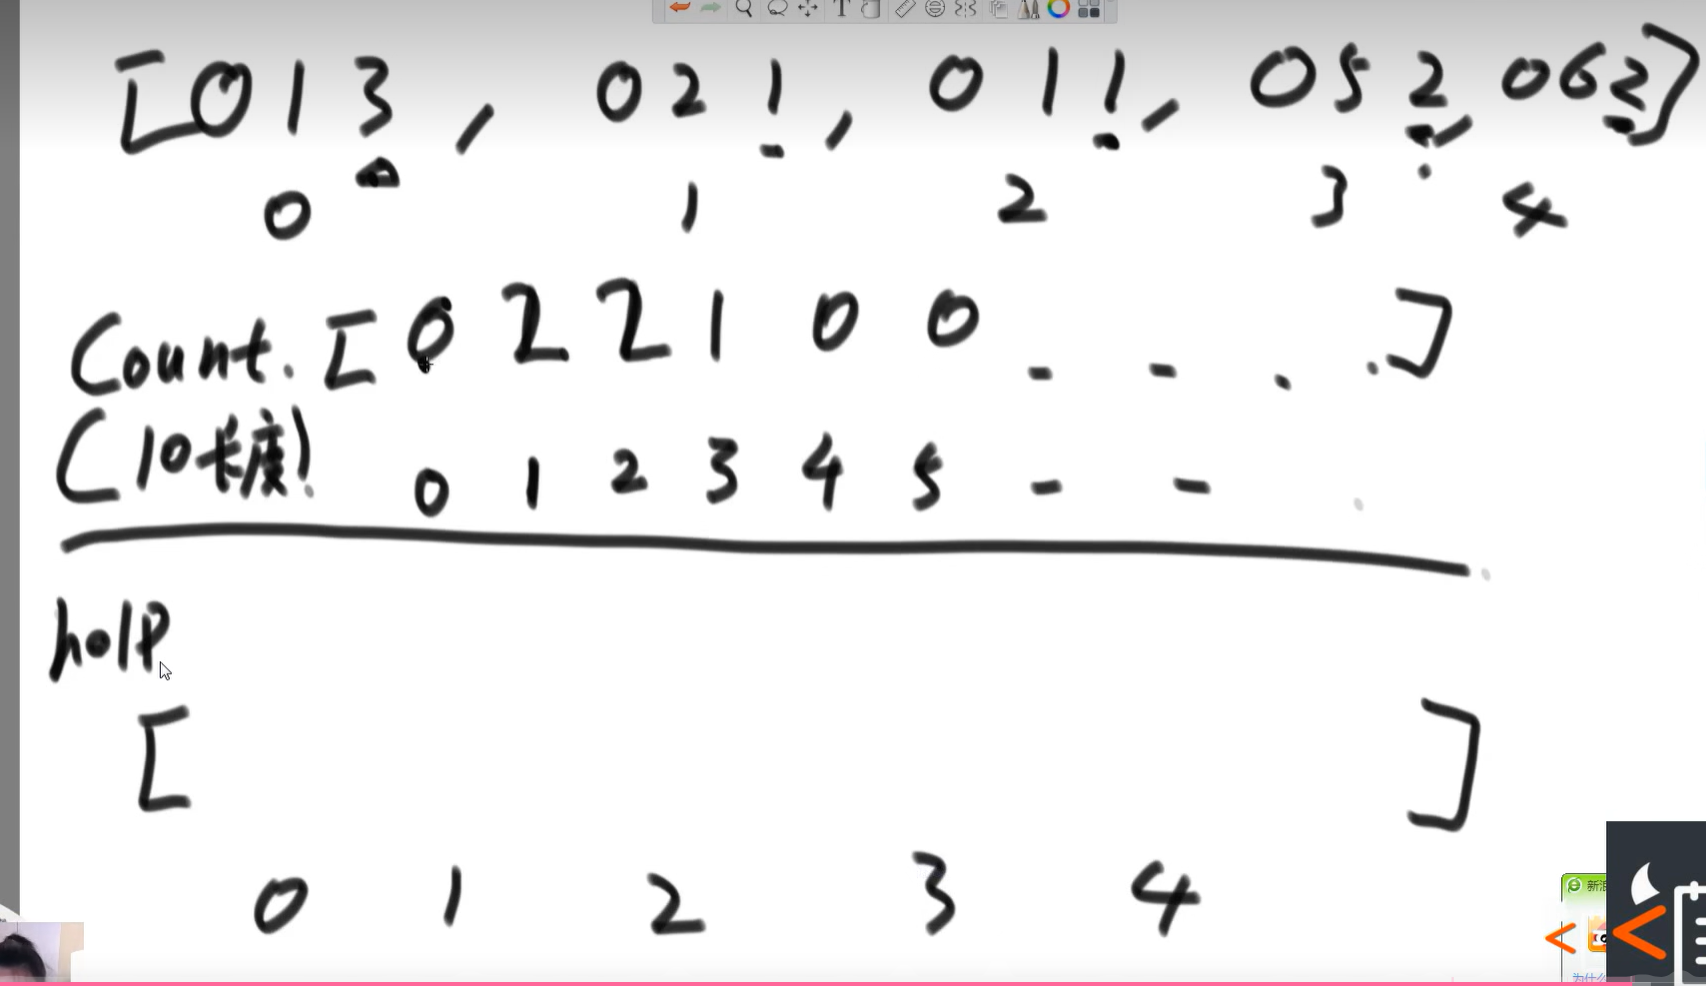 [013, 021, 011, 052, 062]
0 1 2 3 4
Count. [0 2 2 1 0 0 - - . .]
(10长度) 0 1 2 3 4 5 - - .
help
[ ]
0 1 2 3 4
新浪
为什么